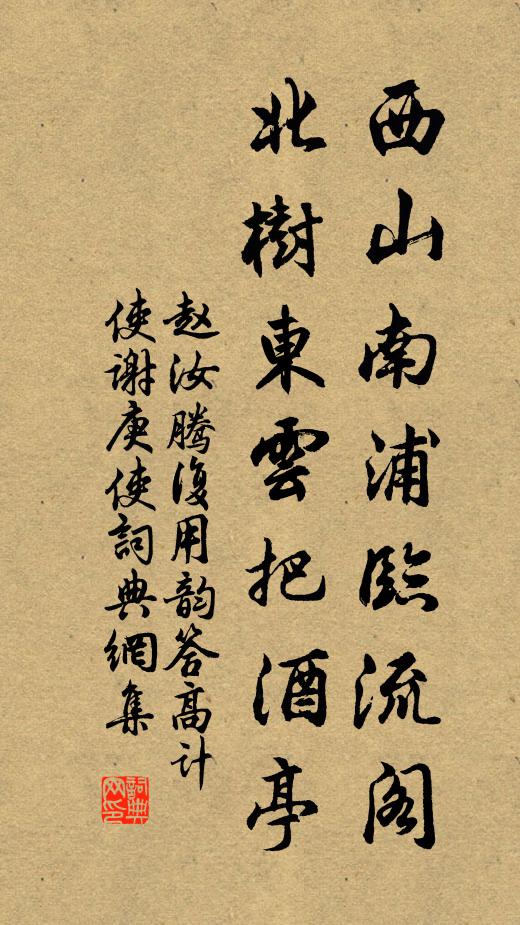 西山南浦臨流閣
北樹東雲把酒亭
赵汝腾復用韵答高计
使谢庚使詞典網集
詞典网印